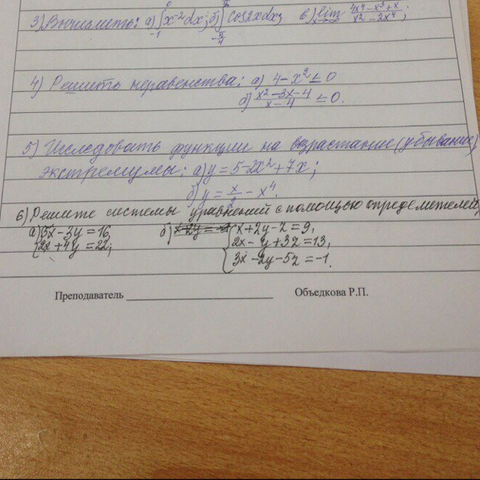 3) Вычислить: а) ∫ x⁻² dx; б) ∫ cos2x dx; в) lim (4x⁴ - x³ + x)/(x² - 2x⁴);
-1 -π/4
4) Решить неравенства: а) 4 - x² ≤ 0
б) (x² - 3x - 4)/(x - 4) ≤ 0.
5) Исследовать функции на возрастание (убывание)
экстремумы: а) y = 5 - 2x² + 7x;
б) y = x/2 - x⁴.
6) Решите системы уравнений с помощью определителей,
а) 5x - 3y = 16, б) { x + 2y - z = 9,
2x + 4y = 22; 2x - y + 3z = 13,
3x - 2y - 5z = -1.
Преподаватель Объедкова Р.П.